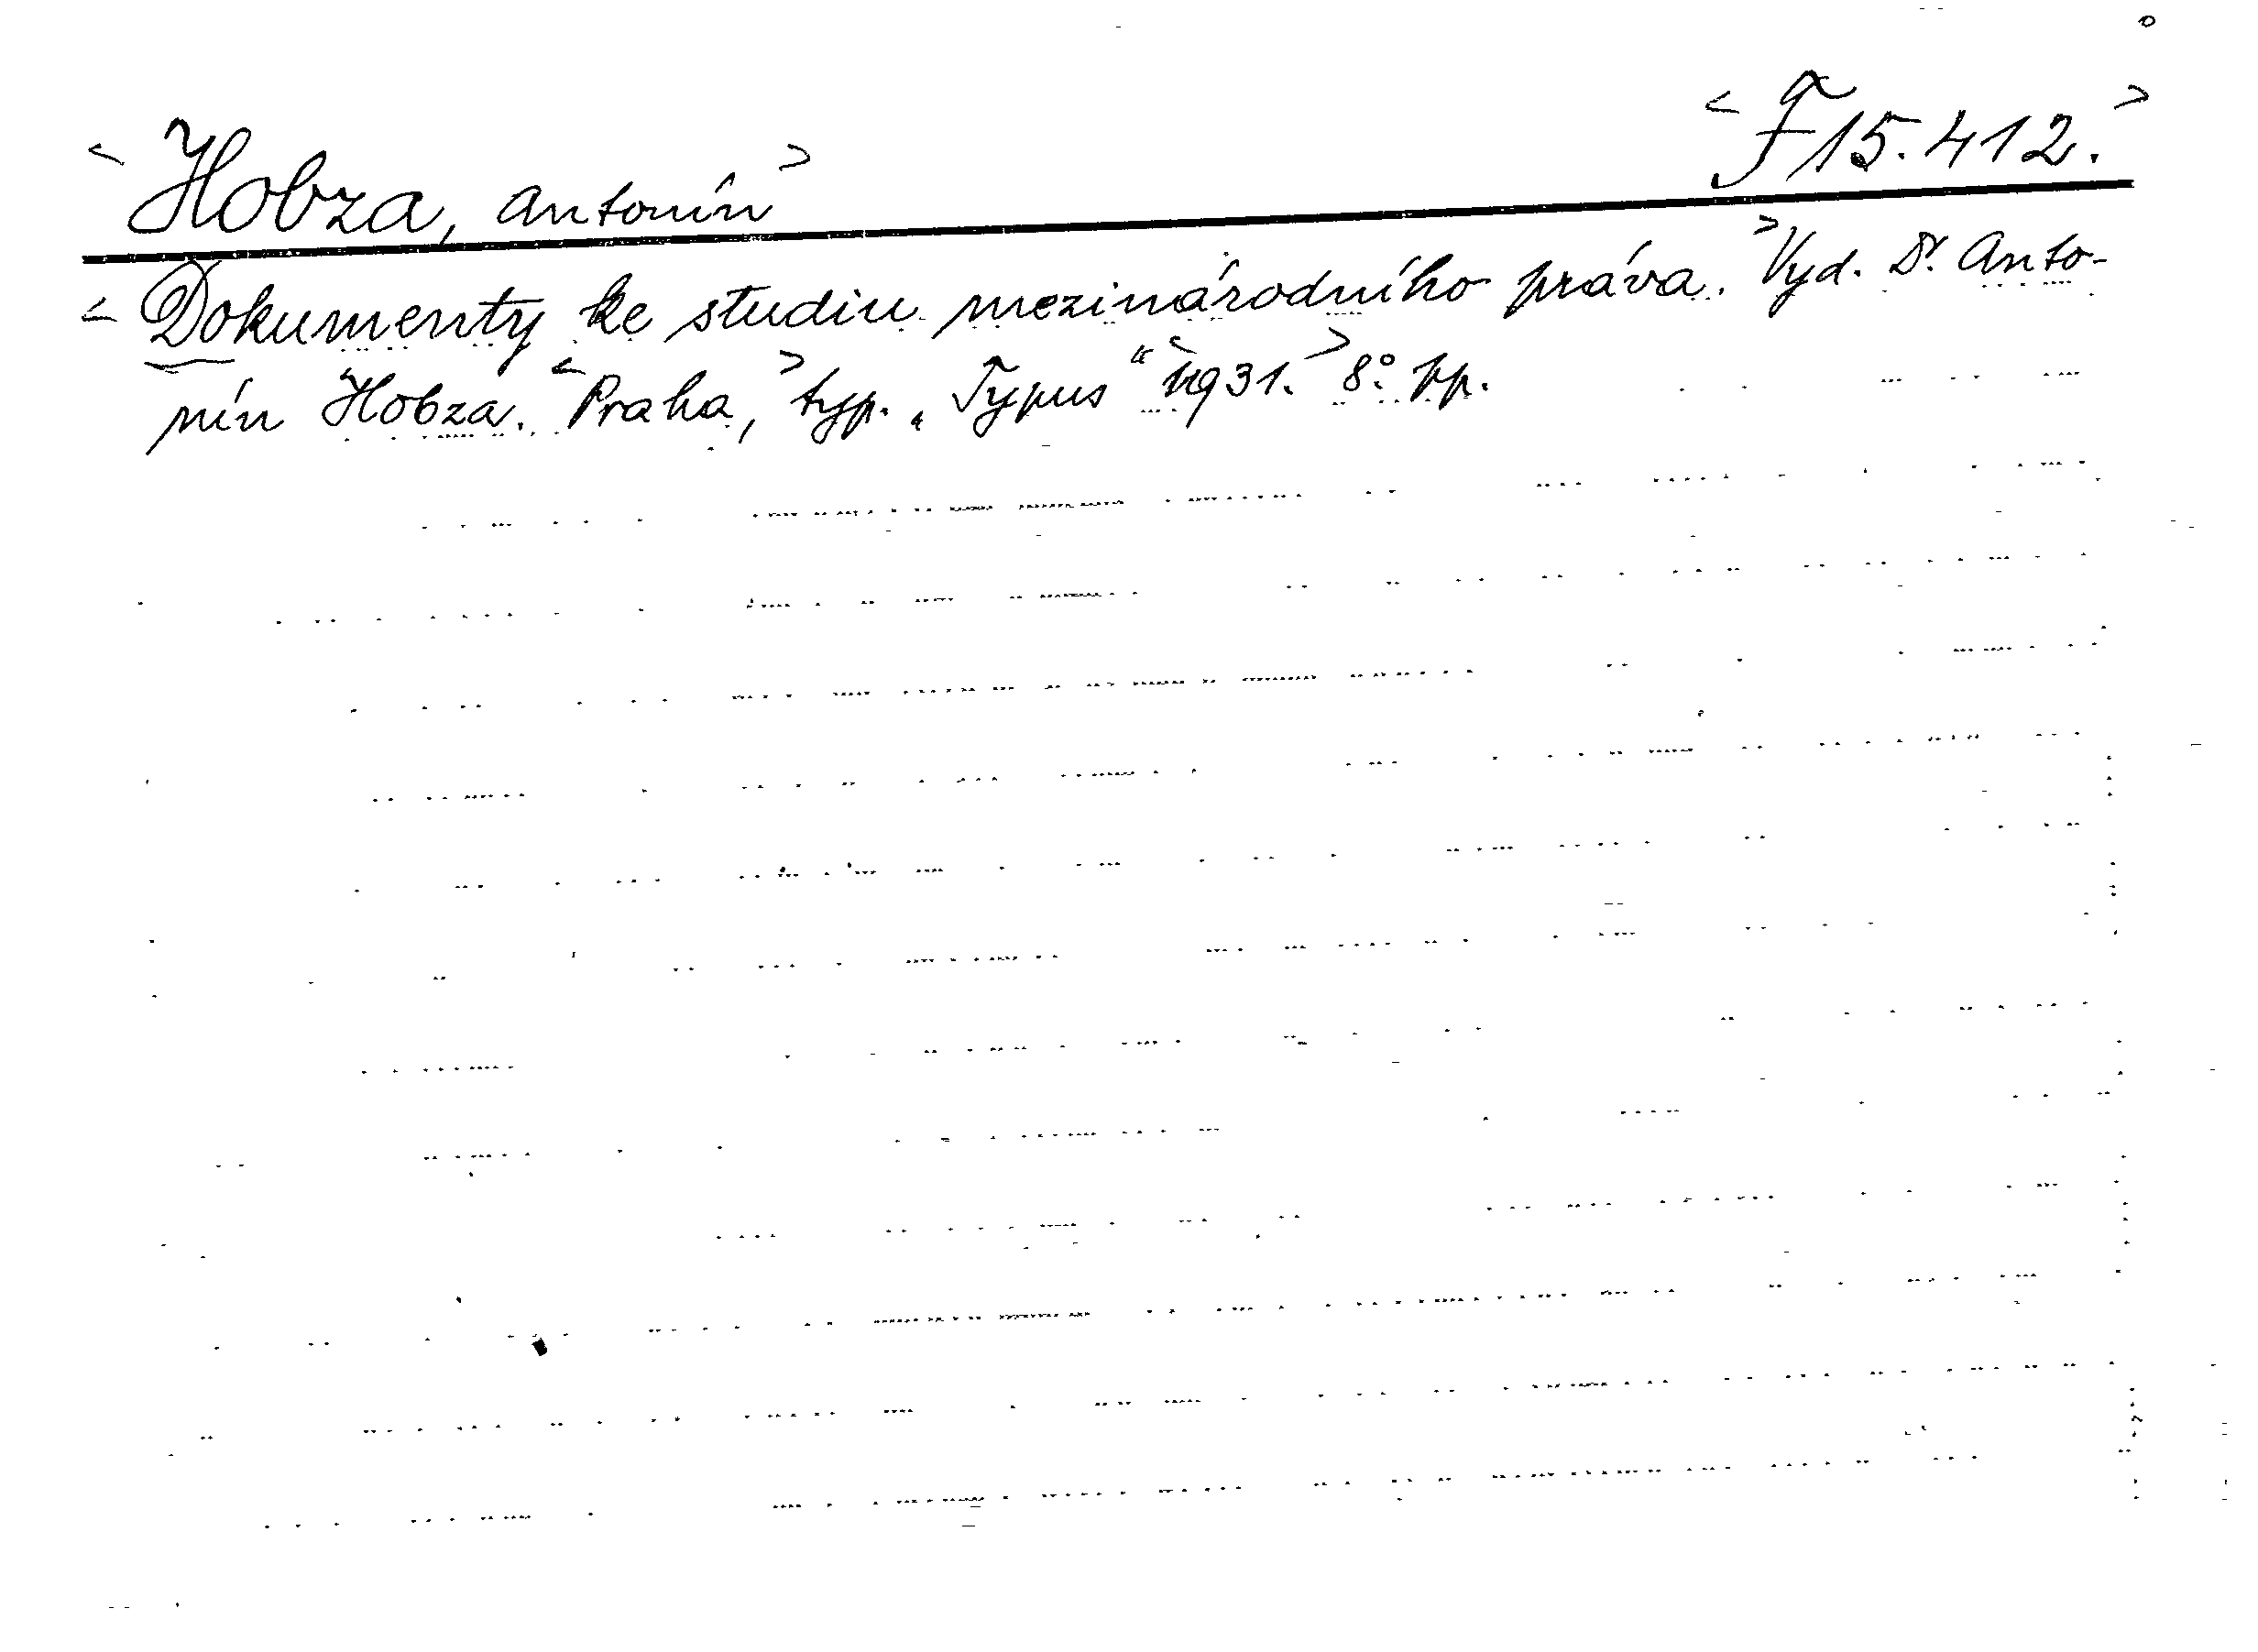 <Hobza, Antonín> <F 15.412.>
<Dokumenty ke studiu mezinárodního práva.> Vyd. Dr. Anto-
nín Hobza. <Praha,> typ. „Typus“ <1931.> 8° pp.